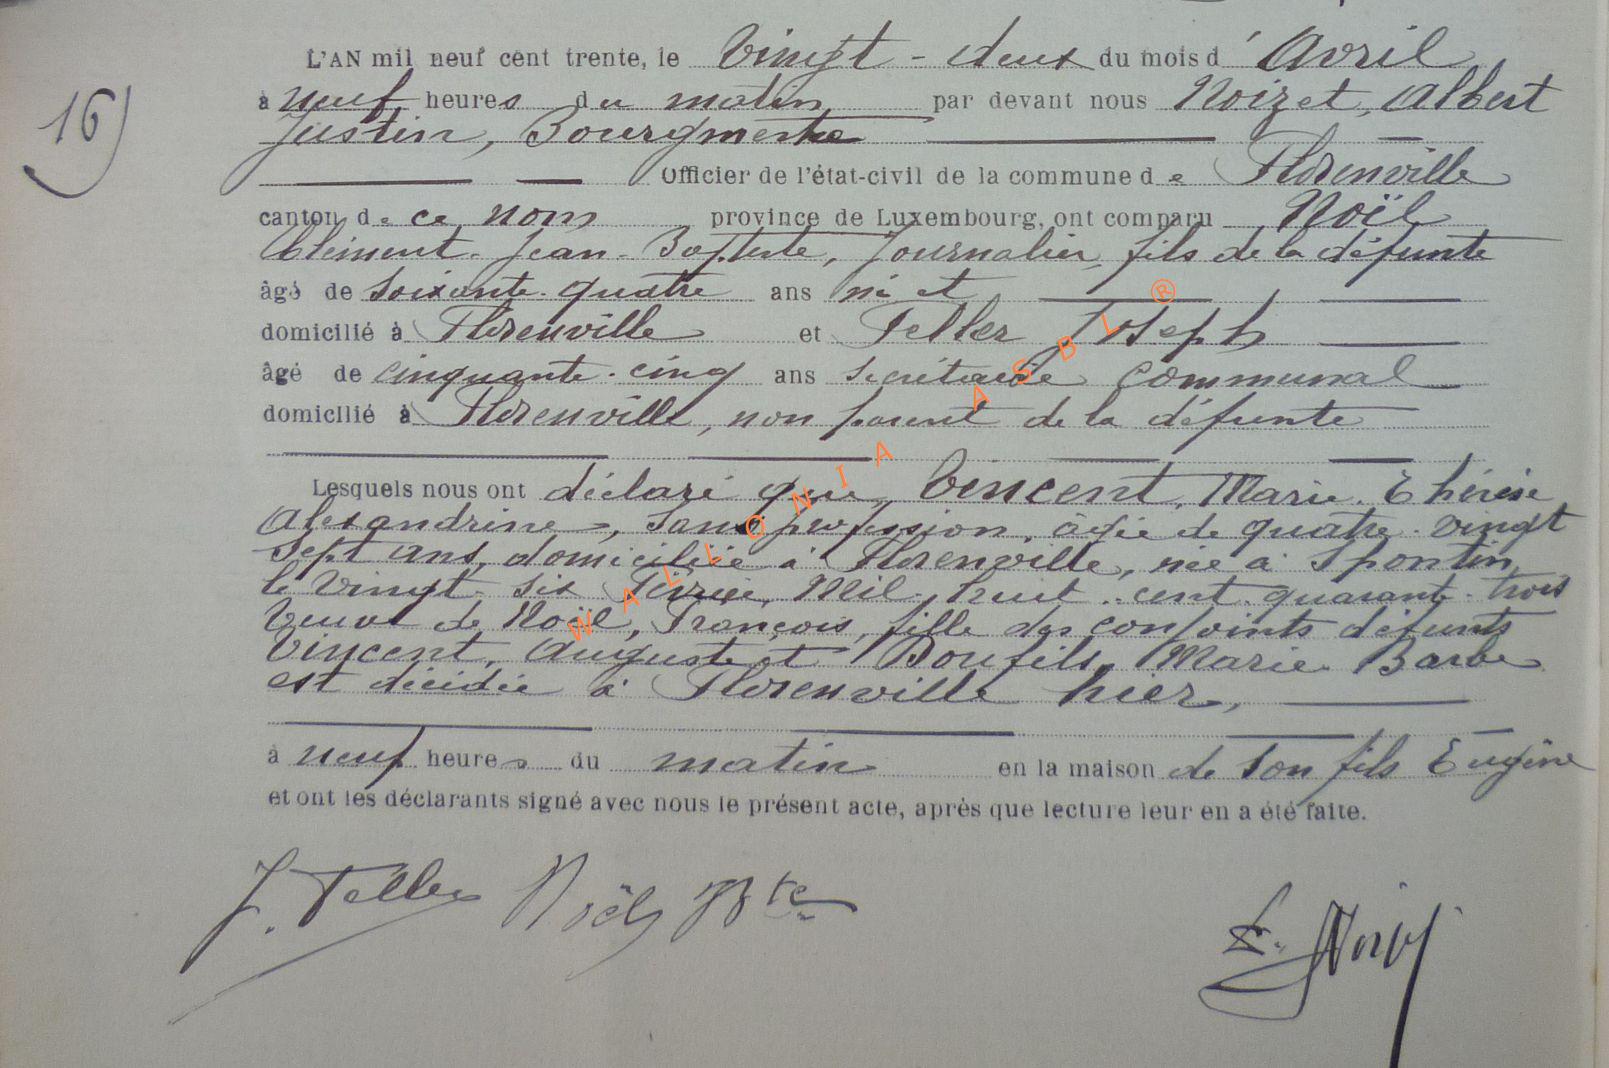 L'AN mil neuf cent trente, le Vingt-deux du mois d'Avril
16)
à neuf heures du matin par devant nous Noizet, Albert
Justin, Bourgmestre
Officier de l'état-civil de la commune de Florenville
canton de ce nom province de Luxembourg, ont comparu Noël
Clément-Jean-Baptiste, Journalier, fils de la défunte
âgé de soixante-quatre ans
domicilié à Florenville et Feller Joseph
âgé de cinquante-cinq ans secrétaire communal
domicilié à Florenville, non parent de la défunte
Lesquels nous ont déclaré que Vincent, Marie-Thérèse
Alexandrine, sans profession, âgée de quatre-vingt
sept ans, domiciliée à Florenville, née à Spontin
le vingt-six Février, Mil-huit-cent-quarante-trois
Veuve de Noël, François, fille des conjoints défunts
Vincent, Auguste et Bonfils, Marie Barbe
est décédée à Florenville hier,
à neuf heures du matin en la maison de son fils Eugène
et ont les déclarants signé avec nous le présent acte, après que lecture leur en a été faite.
J. Feller Noël JBte
WALLONIA ASBL ®